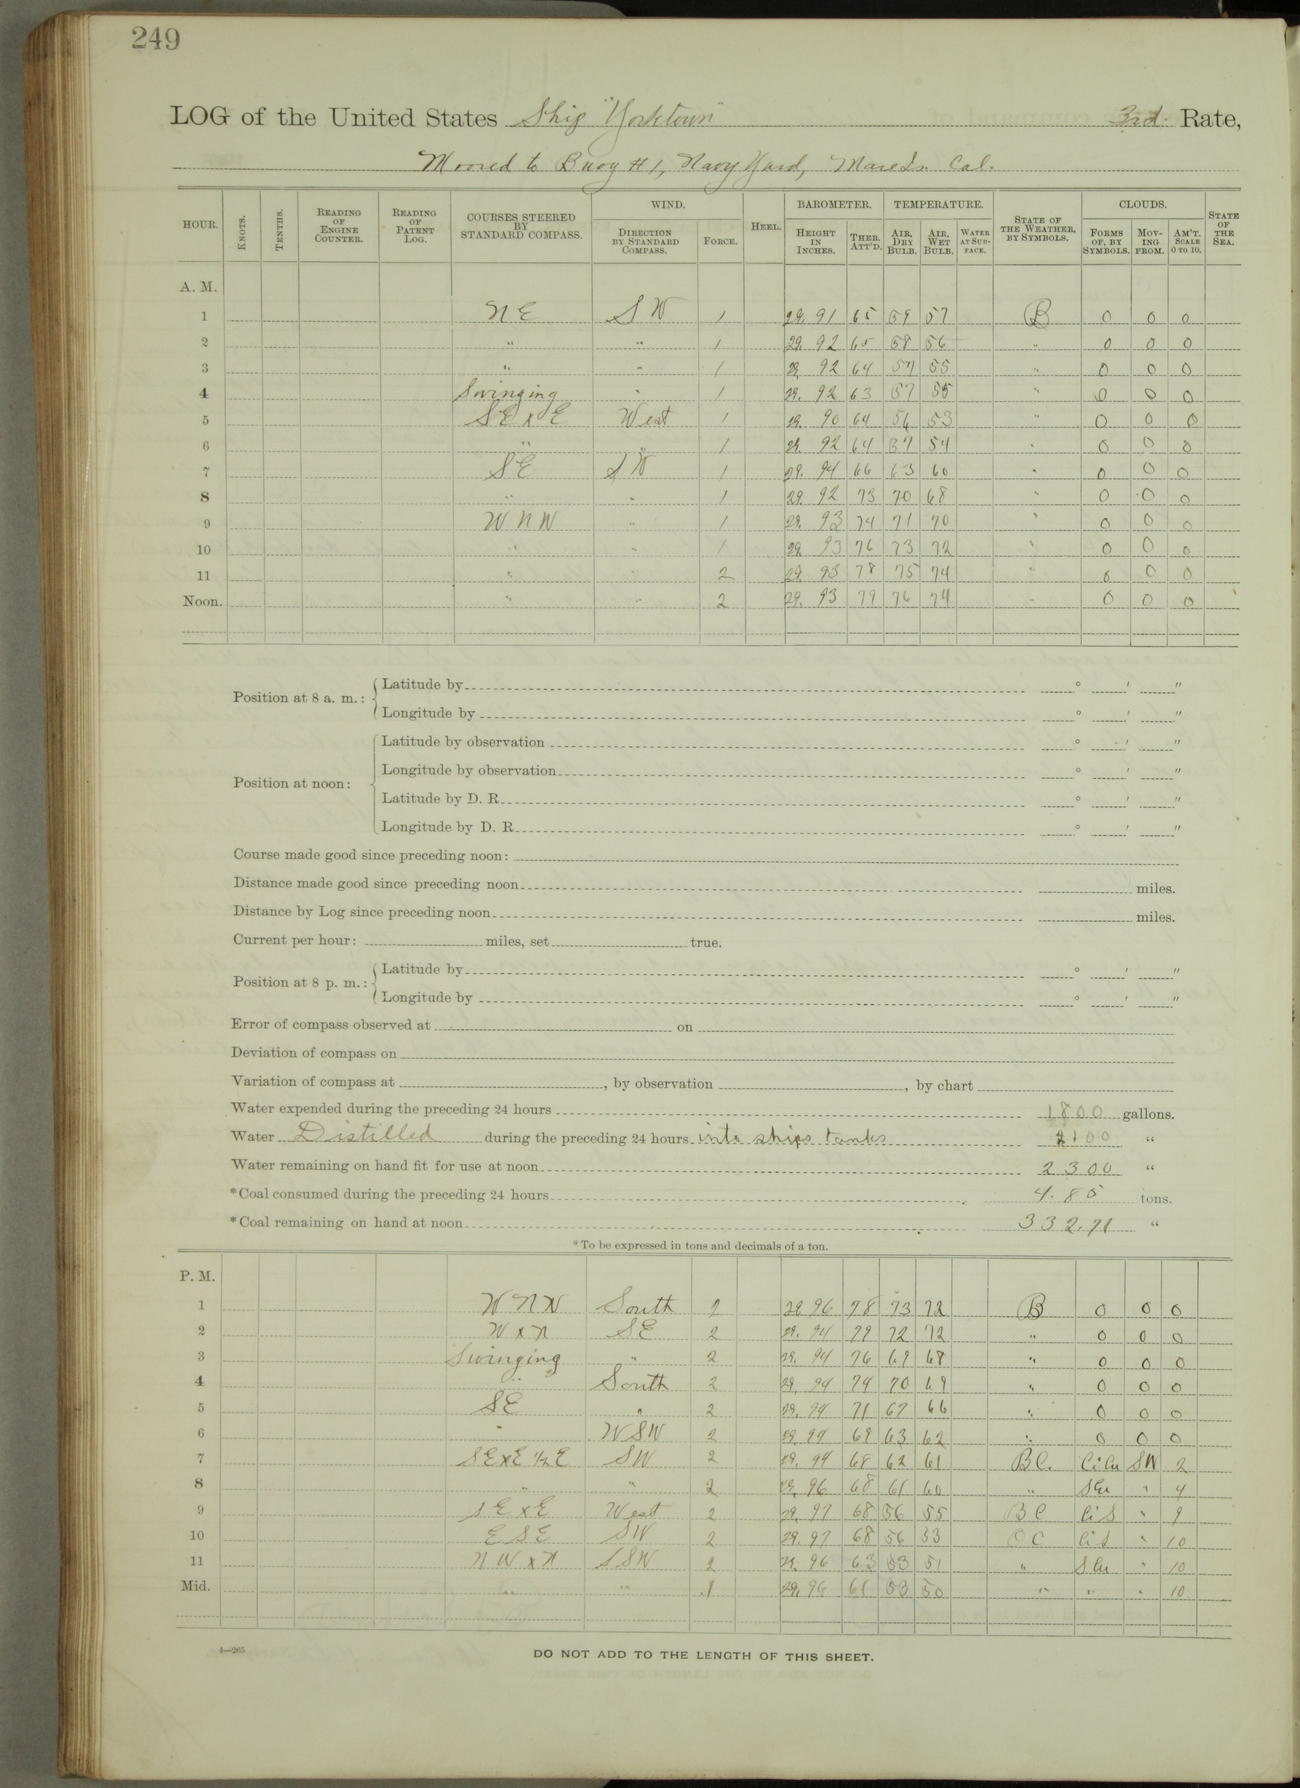 249
LOG of the United States Ship "Yorktown" 3rd Rate,
Moored to Buoy # 1, Navy Yard, Mare Is. Cal.
HOUR. KNOTS. TENTHS. READING OF ENGINE COUNTER. READING OF PATENT LOG. COURSES STEERED BY STANDARD COMPASS. WIND. DIRECTION BY STANDARD COMPASS. FORCE. HEEL. BAROMETER. HEIGHT IN INCHES. THER. ATT'D. TEMPERATURE. AIR, DRY BULB. AIR, WET BULB. WATER AT SURFACE. STATE OF THE WEATHER, BY SYMBOLS. CLOUDS. FORMS OF, BY SYMBOLS. MOVING FROM. AM'T. SCALE 0 TO 10. STATE OF THE SEA.
A. M.
1 NE SW 1 29.91 65 59 57 B 0 0 0
2 " " 1 29.92 65 58 56 " 0 0 0
3 " " 1 29.92 64 57 55 " 0 0 0
4 Swinging " 1 29.92 63 57 55 " 0 0 0
5 SE x E West 1 29.90 64 56 53 " 0 0 0
6 " " 1 29.92 64 57 54 " 0 0 0
7 SE SW 1 29.94 66 63 60 " 0 0 0
8 " " 1 29.92 73 70 68 " 0 0 0
9 WNW " 1 29.93 74 71 70 " 0 0 0
10 " " 1 29.93 76 73 72 " 0 0 0
11 " " 2 29.93 78 75 74 " 0 0 0
Noon. " " 2 29.93 79 76 74 " 0 0 0
Position at 8 a. m.: Latitude by ° ′ ″
Longitude by ° ′ ″
Position at noon: Latitude by observation ° ′ ″
Longitude by observation ° ′ ″
Latitude by D. R. ° ′ ″
Longitude by D. R. ° ′ ″
Course made good since preceding noon:
Distance made good since preceding noon miles.
Distance by Log since preceding noon miles.
Current per hour: miles, set true.
Position at 8 p. m.: Latitude by ° ′ ″
Longitude by ° ′ ″
Error of compass observed at on
Deviation of compass on
Variation of compass at , by observation , by chart
Water expended during the preceding 24 hours 1800 gallons.
Water Distilled during the preceding 24 hours into ships tanks 2100 "
Water remaining on hand fit for use at noon 2300 "
*Coal consumed during the preceding 24 hours 4.85 tons.
*Coal remaining on hand at noon 332.71 "
*To be expressed in tons and decimals of a ton.
P. M.
1 WNW South 2 29.96 78 73 72 B 0 0 0
2 W x N SE 2 29.94 79 72 72 " 0 0 0
3 Swinging " 2 29.94 76 69 68 " 0 0 0
4 " South 2 29.94 74 70 69 " 0 0 0
5 SE " 2 29.94 71 67 66 " 0 0 0
6 " WSW 2 29.94 69 63 62 " 0 0 0
7 SE x E ½ E SW 2 29.94 68 62 61 BC. Ci Cu SW 2
8 " " 2 29.96 68 61 60 " S Cu " 4
9 SE x E West 2 29.97 68 56 55 BC Ci S " 9
10 ESE SW 2 29.97 68 56 53 OC Ci S " 10
11 NW x N SSW 2 29.96 63 53 51 " S Cu " 10
Mid. " " 1 29.96 61 53 50 " " " 10
4—265
DO NOT ADD TO THE LENGTH OF THIS SHEET.